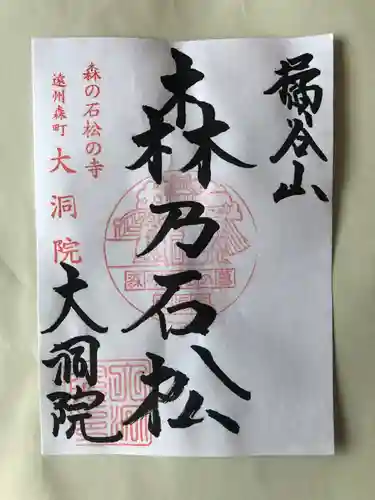 橘谷山
森乃石松
森の石松の寺
遠州森町
大洞院
大洞院